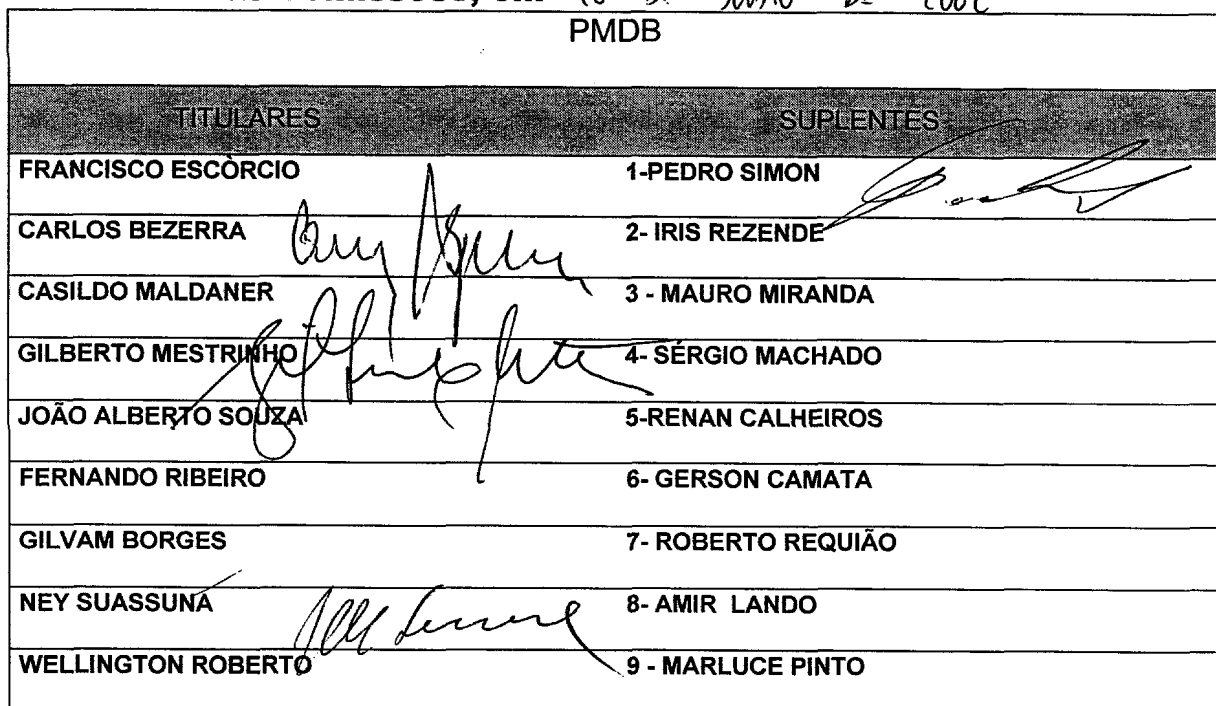 PMDB
TITULARES SUPLENTES
FRANCISCO ESCÒRCIO 1-PEDRO SIMON
CARLOS BEZERRA 2- IRIS REZENDE
CASILDO MALDANER 3 - MAURO MIRANDA
GILBERTO MESTRINHO 4- SÉRGIO MACHADO
JOÃO ALBERTO SOUZA 5-RENAN CALHEIROS
FERNANDO RIBEIRO 6- GERSON CAMATA
GILVAM BORGES 7- ROBERTO REQUIÃO
NEY SUASSUNA 8- AMIR LANDO
WELLINGTON ROBERTO 9 - MARLUCE PINTO